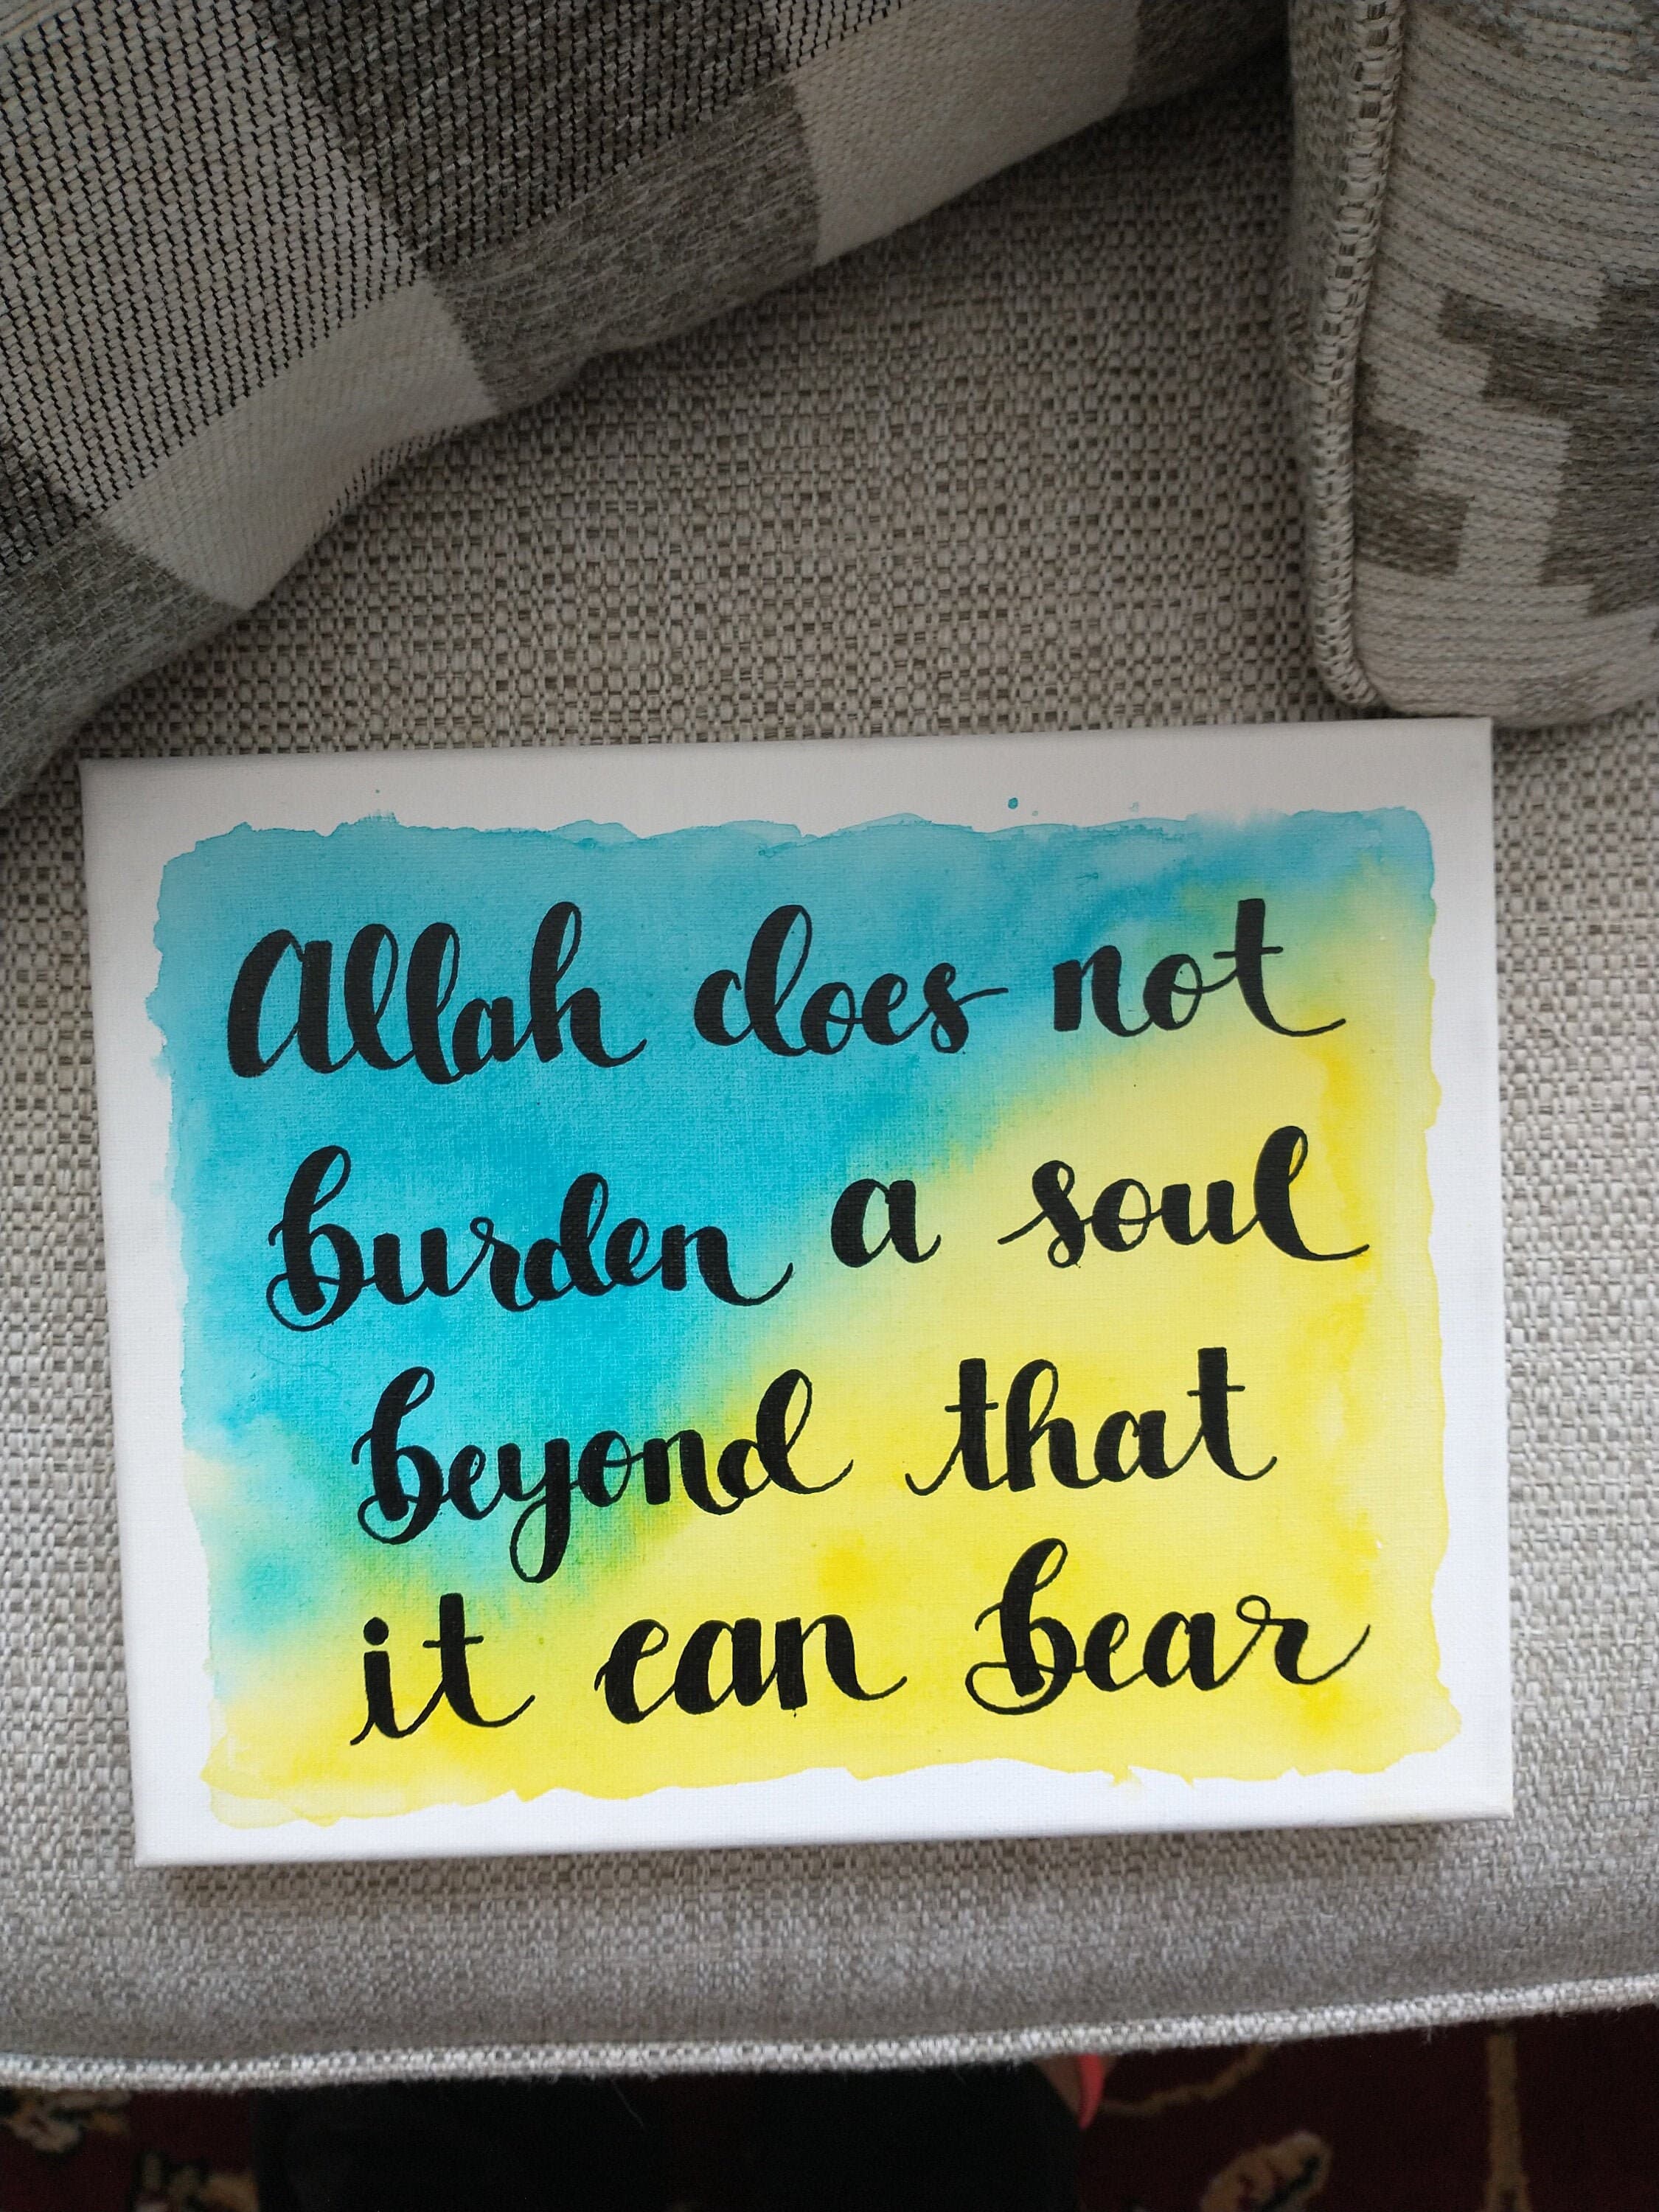 Allah does not
burden a soul
beyond that
it can bear